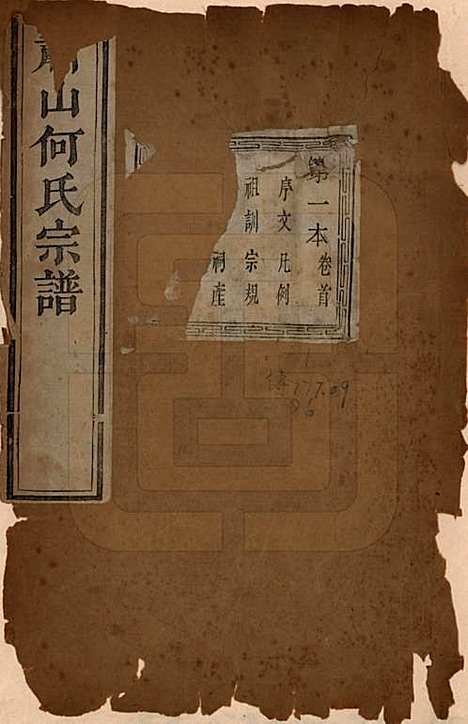 山何氏宗譜
第一本 卷首
序文凡例
祖訓宗規
祠產